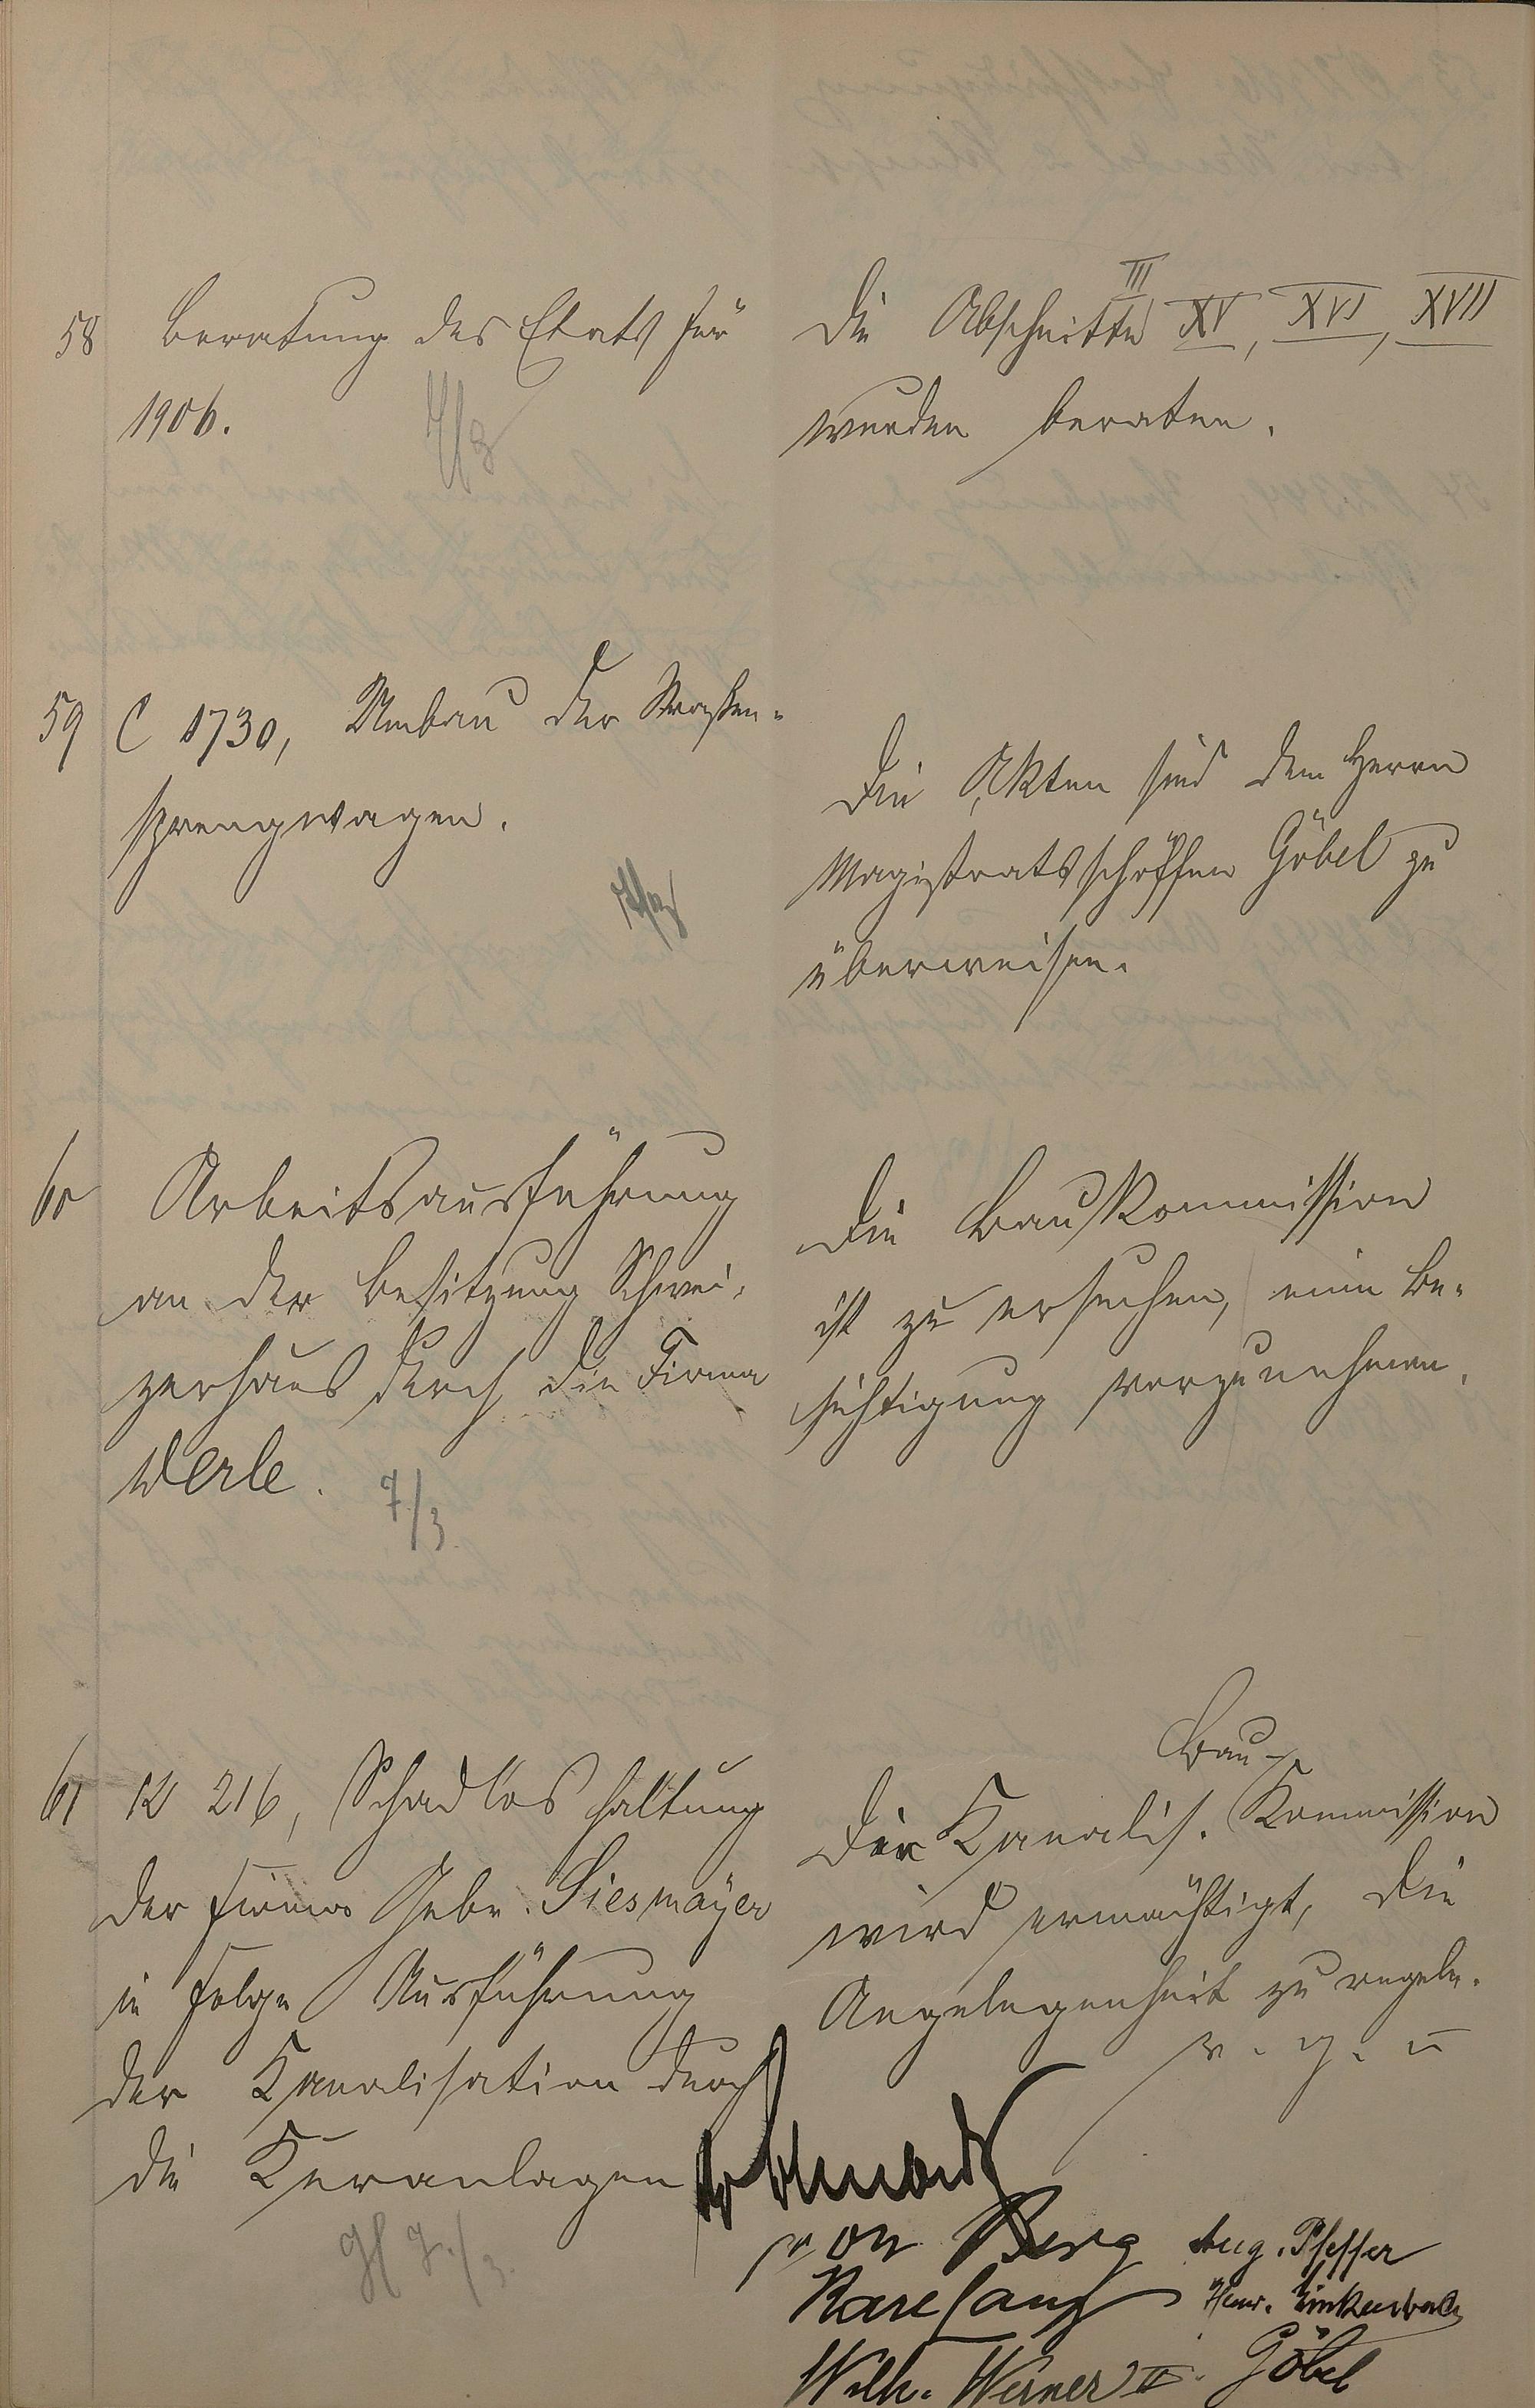 58 Beratung des Etats für
1906.
7/3
III
Die Abschnitte XV, XVI, XVII
wurden beraten.
59 C 1730, Umbau der Straßen-
sprengwagen.
Die Akten sind dem Herrn
Magistratsschöffen Göbel zu
überweisen.
60 Arbeitsausführung
an der Besitzung Schwei-
zerhaus durch die Firma
Werle.
7/3
Die Baukommission
ist zu ersuchen, eine Be-
sichtigung vorzunehmen.
61 K 216, Schadloshaltung
der Firma Gebr. Siesmayer
in Folge Ausführung
der Kanalisation durch
die Kuranlagen
7./3.
Bau-
Die Kanalis. Kommission
wird ermächtigt, die
Angelegenheit zu regeln.
v. g. u
von Berg Aug. Pfeffer
Karl Lang
Wilh. Werner II. Göbel